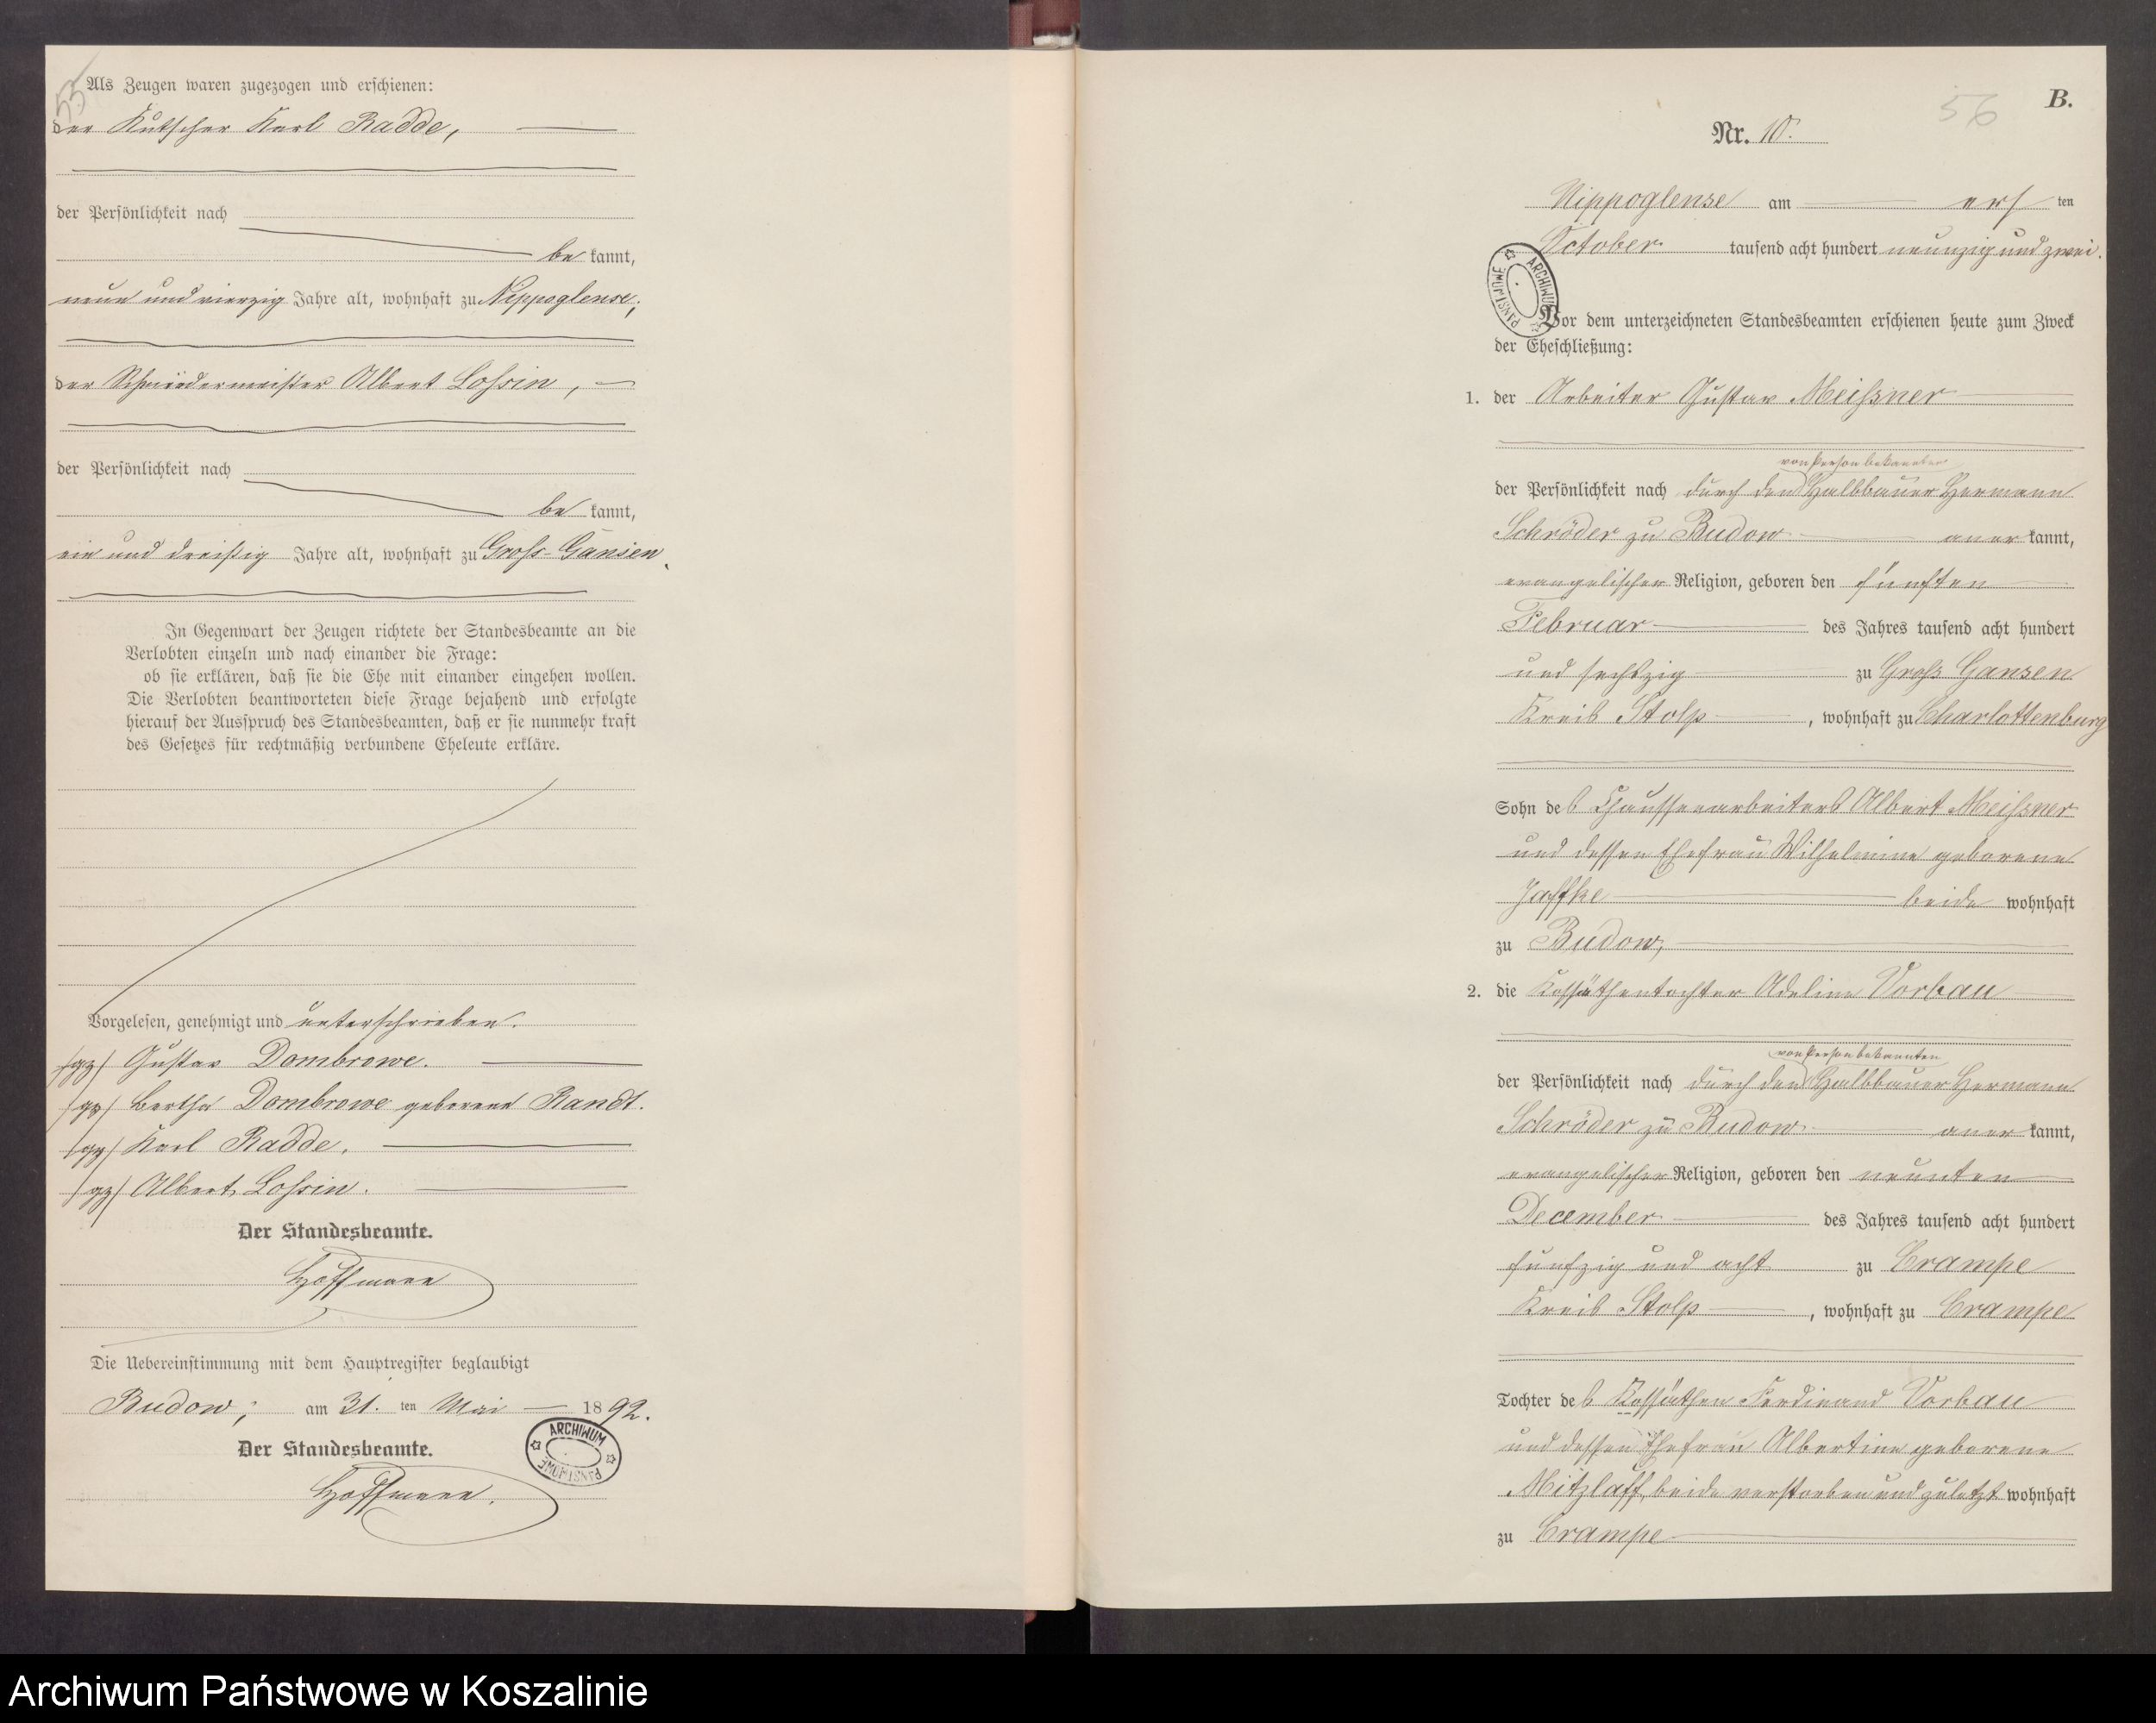 55
Als Zeugen waren zugezogen und erschienen:
der Kutscher Karl Radde,
der Persönlichkeit nach
be kannt,
neun und vierzig Jahre alt, wohnhaft zu Nippoglense,
der Schmiedemeister Albert Lossin,
der Persönlichkeit nach
be kannt,
ein und dreißig Jahre alt, wohnhaft zu Gross-Gansen.
In Gegenwart der Zeugen richtete der Standesbeamte an die
Verlobten einzeln und nach einander die Frage:
ob sie erklären, daß sie die Ehe mit einander eingehen wollen.
Die Verlobten beantworteten diese Frage bejahend und erfolgte
hierauf der Ausspruch des Standesbeamten, daß er sie nunmehr kraft
des Gesetzes für rechtmäßig verbundene Eheleute erkläre.
Vorgelesen, genehmigt und unterschrieben.
/gz/ Gustav Dombrowe.
/gz/ Bertha Dombrowe geborene Randt.
/gz/ Karl Radde.
/gz/ Albert Lossin.
Der Standesbeamte.
Hoffmann
Die Uebereinstimmung mit dem Hauptregister beglaubigt
Budow, am 31. ten Mai 1892.
Der Standesbeamte.
Hoffmann.
ARCHIWUM PAŃSTWOWE
B.
56
Nr. 10.
Nippoglense am ers ten
October tausend acht hundert neunzig und zwei.
ARCHIWUM PAŃSTWOWE
Vor dem unterzeichneten Standesbeamten erschienen heute zum Zweck
der Eheschließung:
1. der Arbeiter Gustav Meissner
von Person bekannten
der Persönlichkeit nach durch den Halbbauer Hermann
Schröder zu Budow aner kannt,
evangelischer Religion, geboren den fünften
Februar des Jahres tausend acht hundert
und sechszig zu Gross Gansen
Kreis Stolp, wohnhaft zu Charlottenburg
Sohn des Chausseearbeiters Albert Meissner
und dessen Ehefrau Wilhelmine geborene
Jaffke beide wohnhaft
zu Budow,
2. die Kossäthentochter Adeline Vorbau
von Person bekannten
der Persönlichkeit nach durch den Halbbauer Hermann
Schröder zu Budow aner kannt,
evangelischer Religion, geboren den neunten
December des Jahres tausend acht hundert
fünfzig und acht zu Crampe
Kreis Stolp, wohnhaft zu Crampe
Tochter des Kossäthen Ferdinand Vorbau
und dessen Ehefrau Albertine geborene
Mitzlaff, beide verstorben und zuletzt wohnhaft
zu Crampe
Archiwum Państwowe w Koszalinie